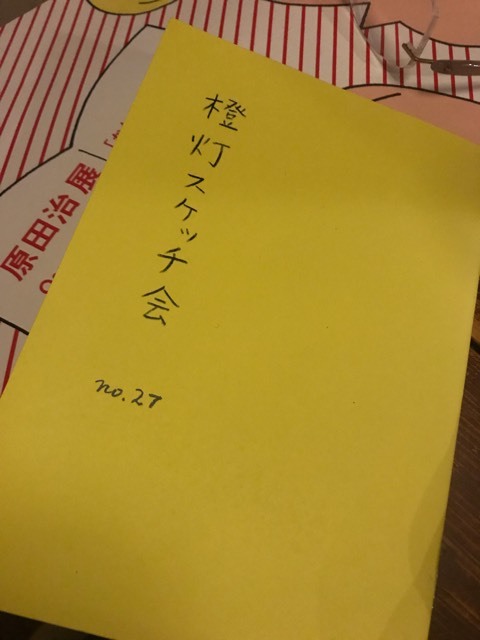 橙灯スケッチ会
no.27
原田治 展